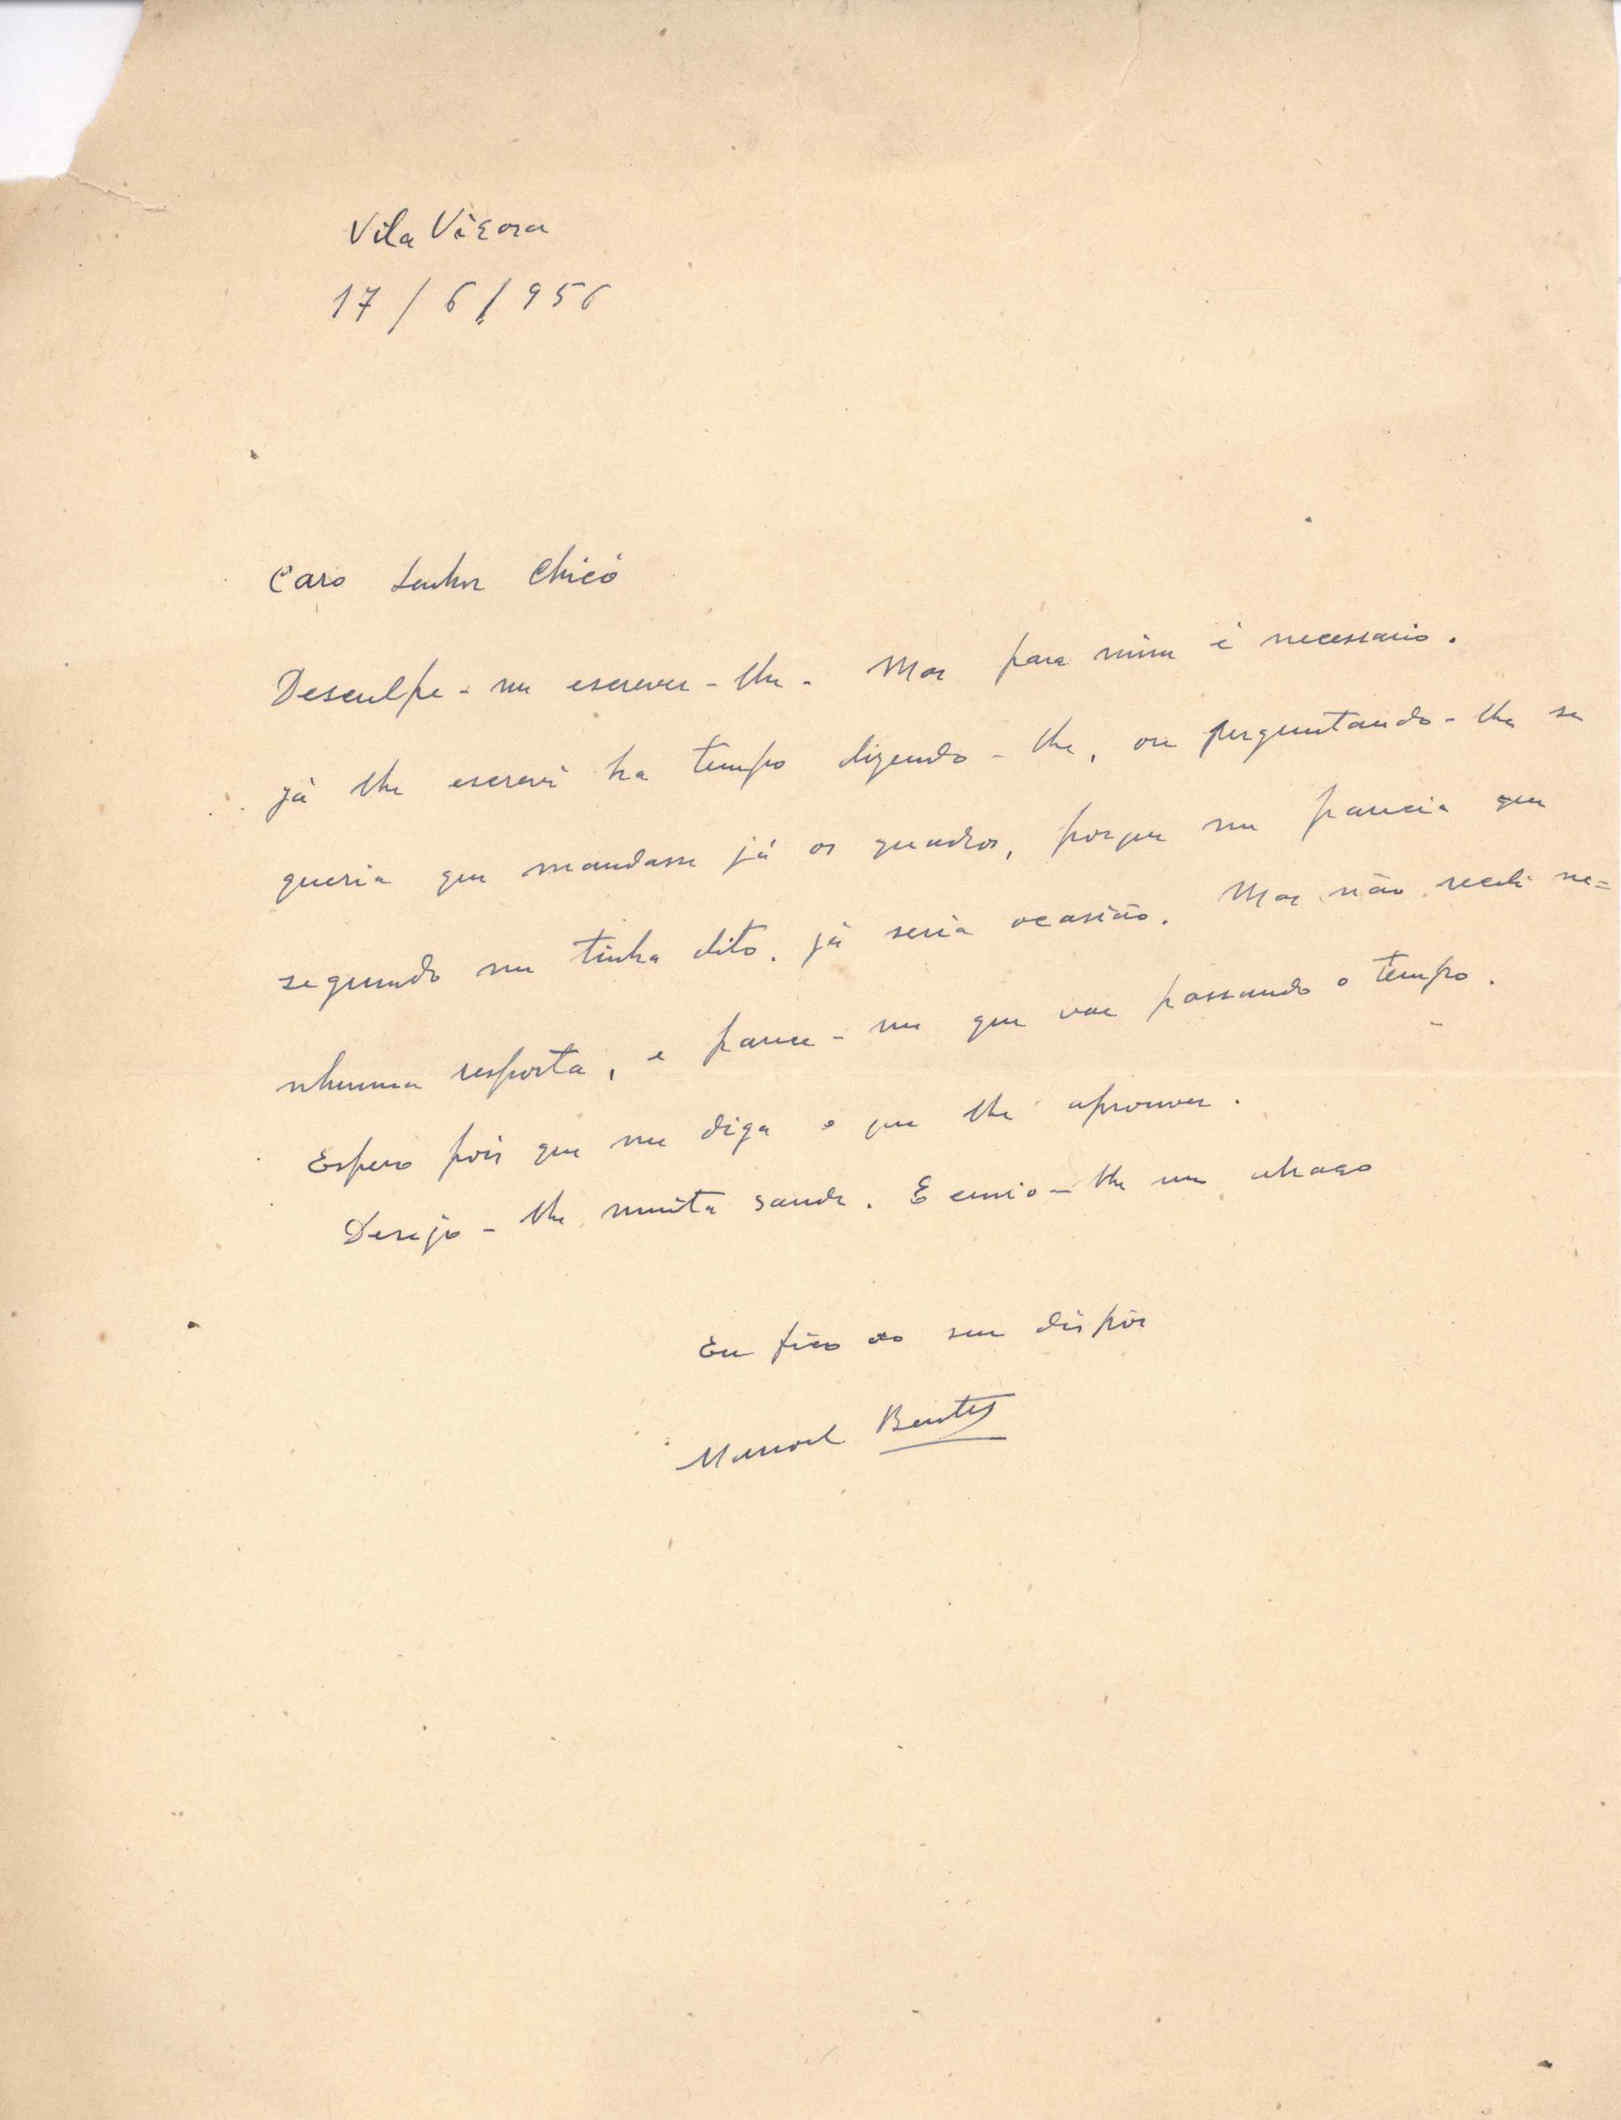 Vila Viçosa
17/6/956
Caro Senhor Chicó
Desculpe-me escrever-lhe. Mas para mim é necessario.
já lhe escrevi ha tempo dizendo-lhe, ou perguntando-lhe se
queria que mandasse já os quadros, porque me parecia que
segundo me tinha dito. já seria ocasião. Mas não recebi ne=
nhuma resposta, e parece-me que vae passando o tempo.
Espero pois que me diga o que lhe aprouver.
Desejo-lhe muita saude. E envio-lhe um abraço
Eu fico ao seu dispôr
Manoel Bentes